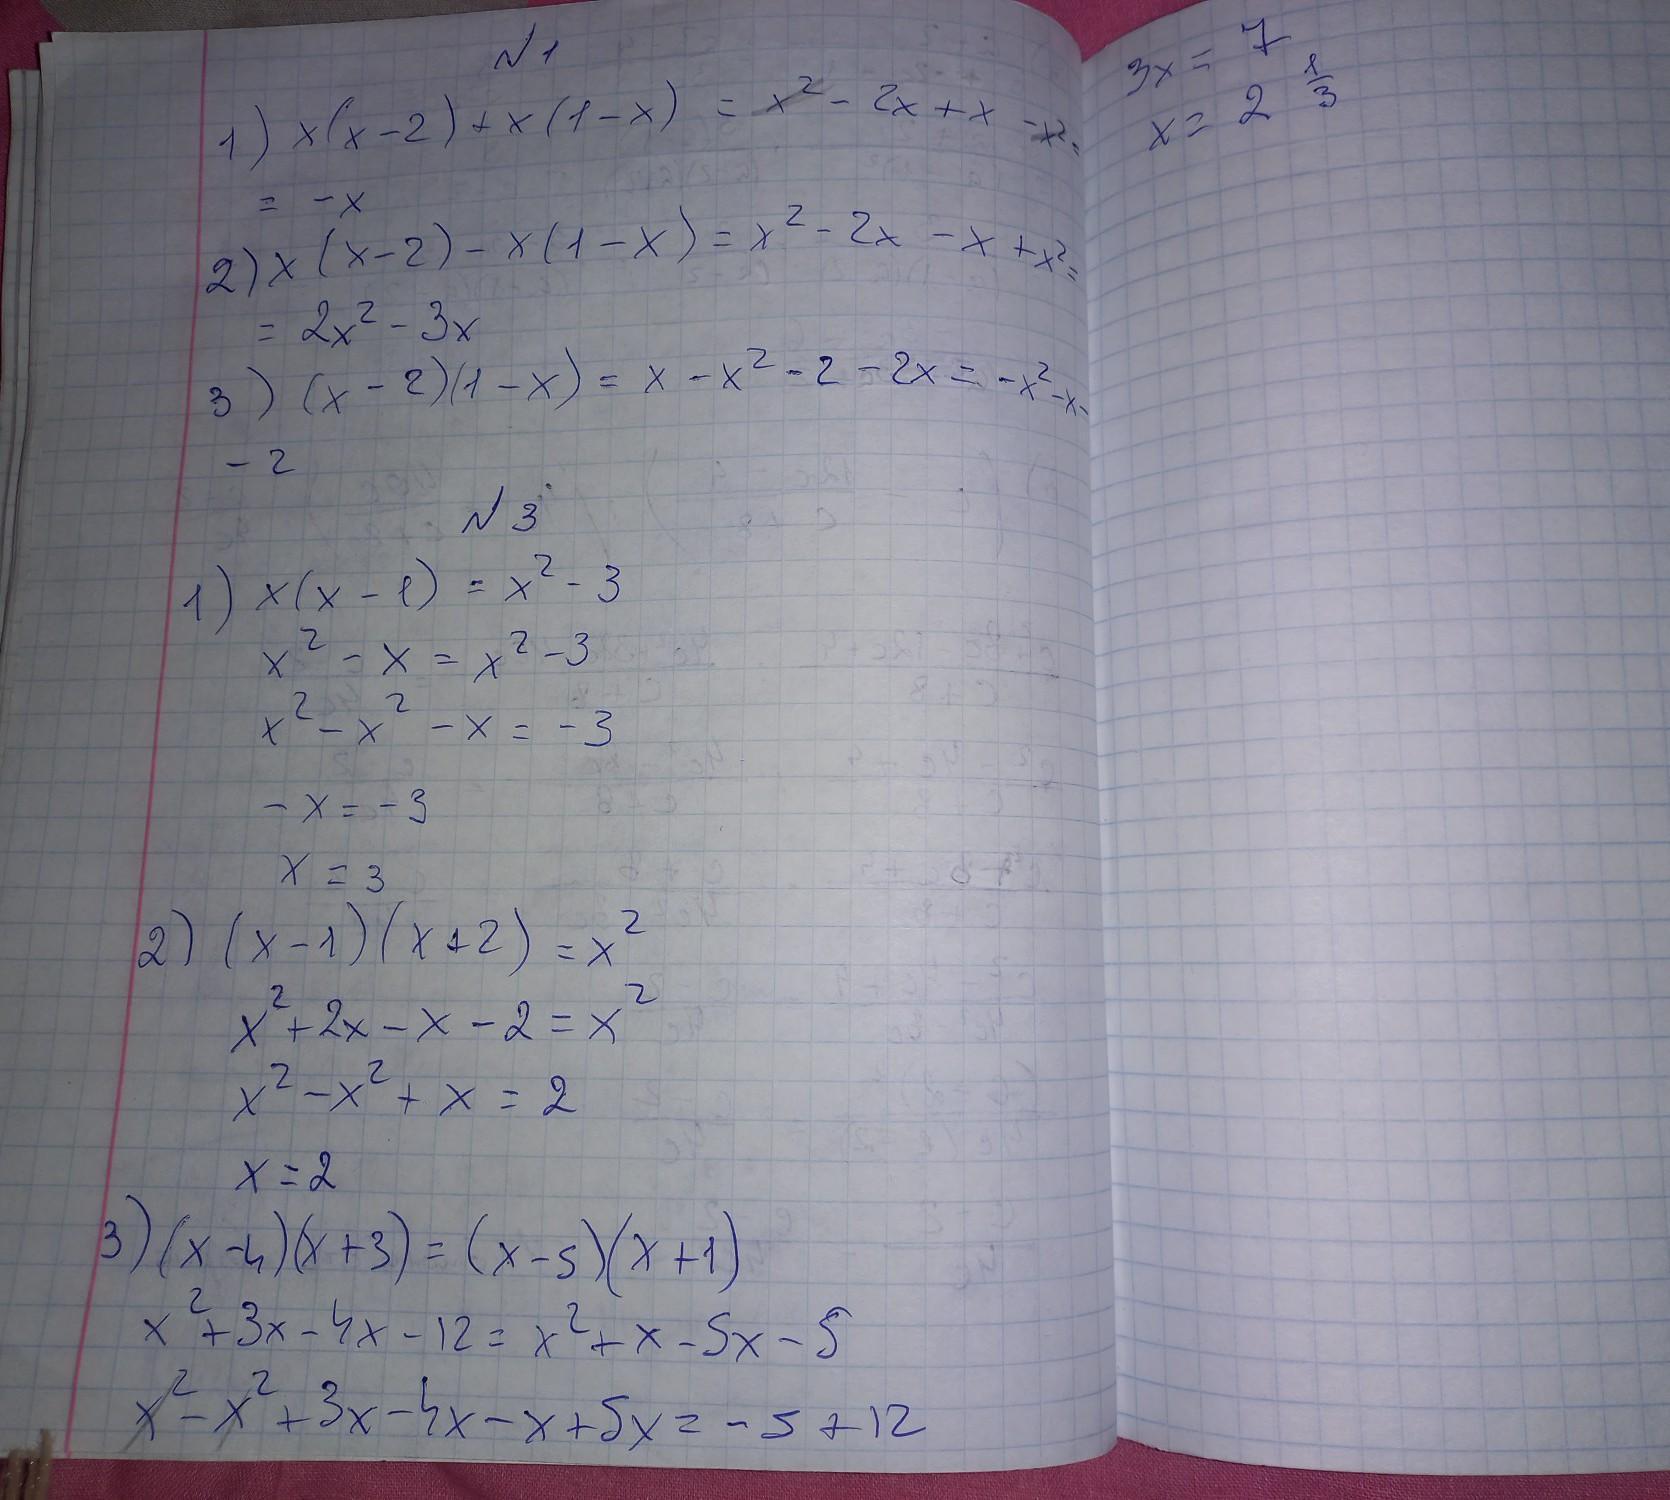 №1
1) x(x-2)+x(1-x) = x² - 2x + x - x² =
= -x
2) x(x-2) - x(1-x) = x² - 2x - x + x² =
= 2x² - 3x
3) (x-2)(1-x) = x - x² - 2 - 2x = -x² - x -
- 2
№3
1) x(x-1) = x² - 3
x² - x = x² - 3
x² - x² - x = -3
-x = -3
x = 3
2) (x-1)(x+2) = x²
x² + 2x - x - 2 = x²
x² - x² + x = 2
x = 2
3) (x-4)(x+3) = (x-5)(x+1)
x² + 3x - 4x - 12 = x² + x - 5x - 5
x² - x² + 3x - 4x - x + 5x = -5 + 12
3x = 7
x = 2 1/3